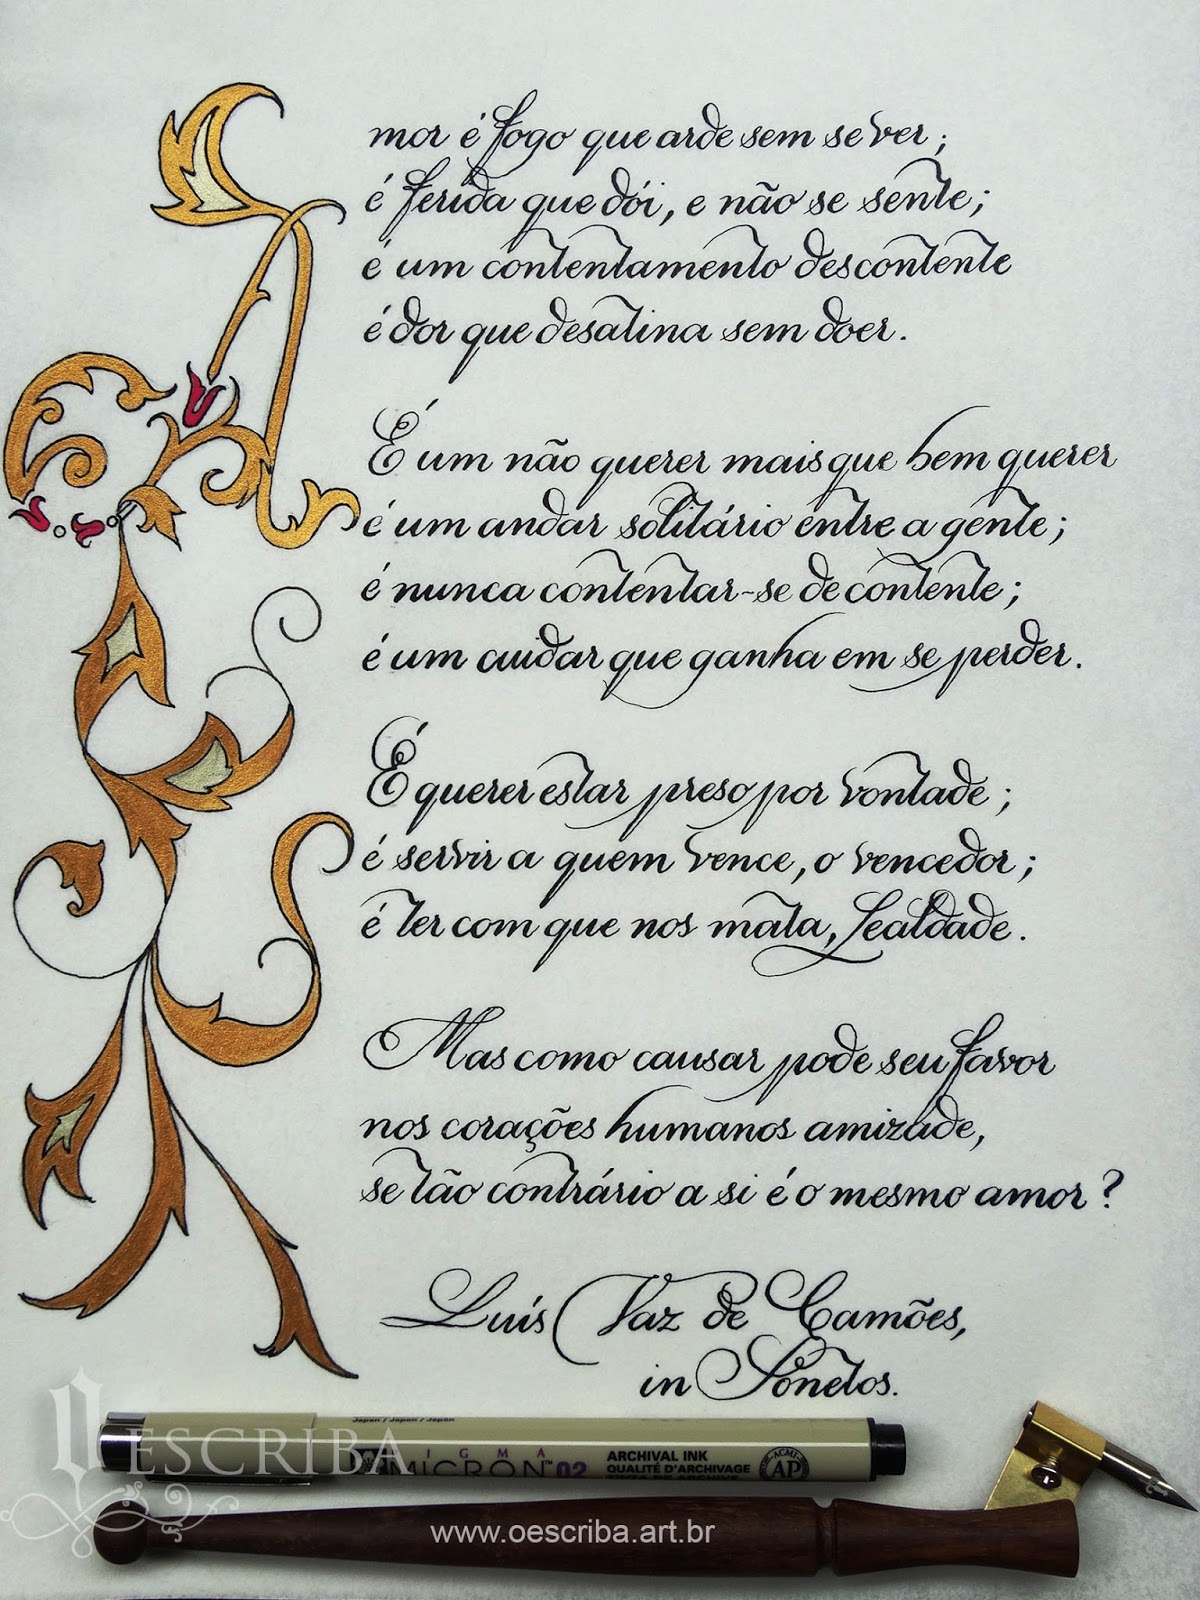 Amor é fogo que arde sem se ver;
é ferida que dói, e não se sente;
é um contentamento descontente
é dor que desatina sem doer.
É um não querer mais que bem querer
é um andar solitário entre a gente;
é nunca contentar-se de contente;
é um cuidar que ganha em se perder.
É querer estar preso por vontade;
é servir a quem vence, o vencedor;
é ter com que nos mata, Lealdade.
Mas como causar pode seu favor
nos corações humanos amizade,
se tão contrário a si é o mesmo amor?
Luís Vaz de Camões,
in Sonetos.
Japan / Japon / Japan
SIGMA
MICRON™ 02
ARCHIVAL INK
QUALITÉ D'ARCHIVAGE
ACMI
AP
O ESCRIBA
www.oescriba.art.br